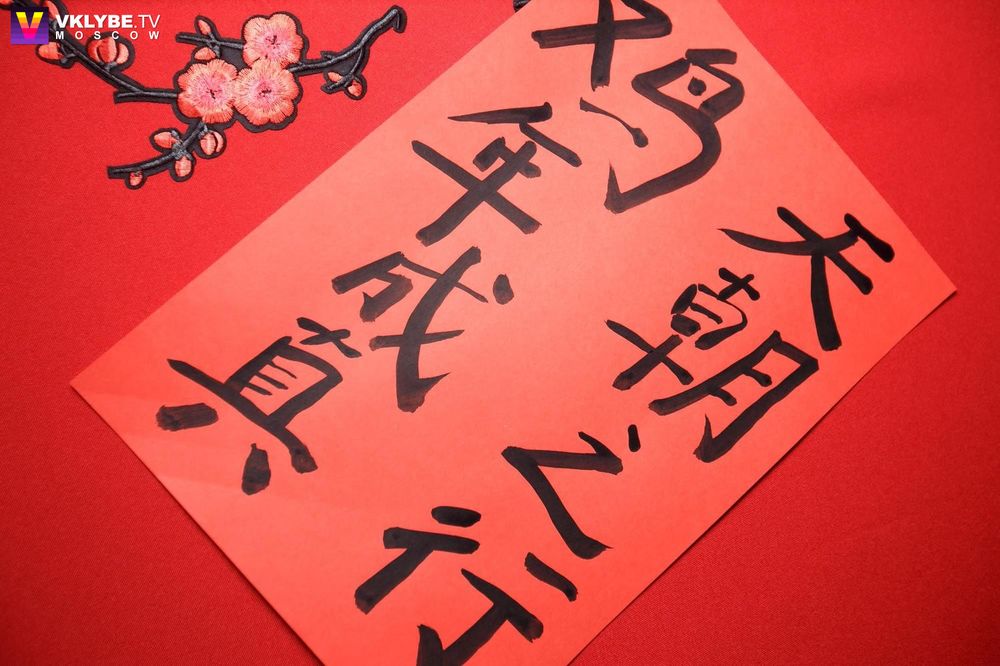 VKLYBE.TV
MOSCOW
天朝之行
鸡年成真